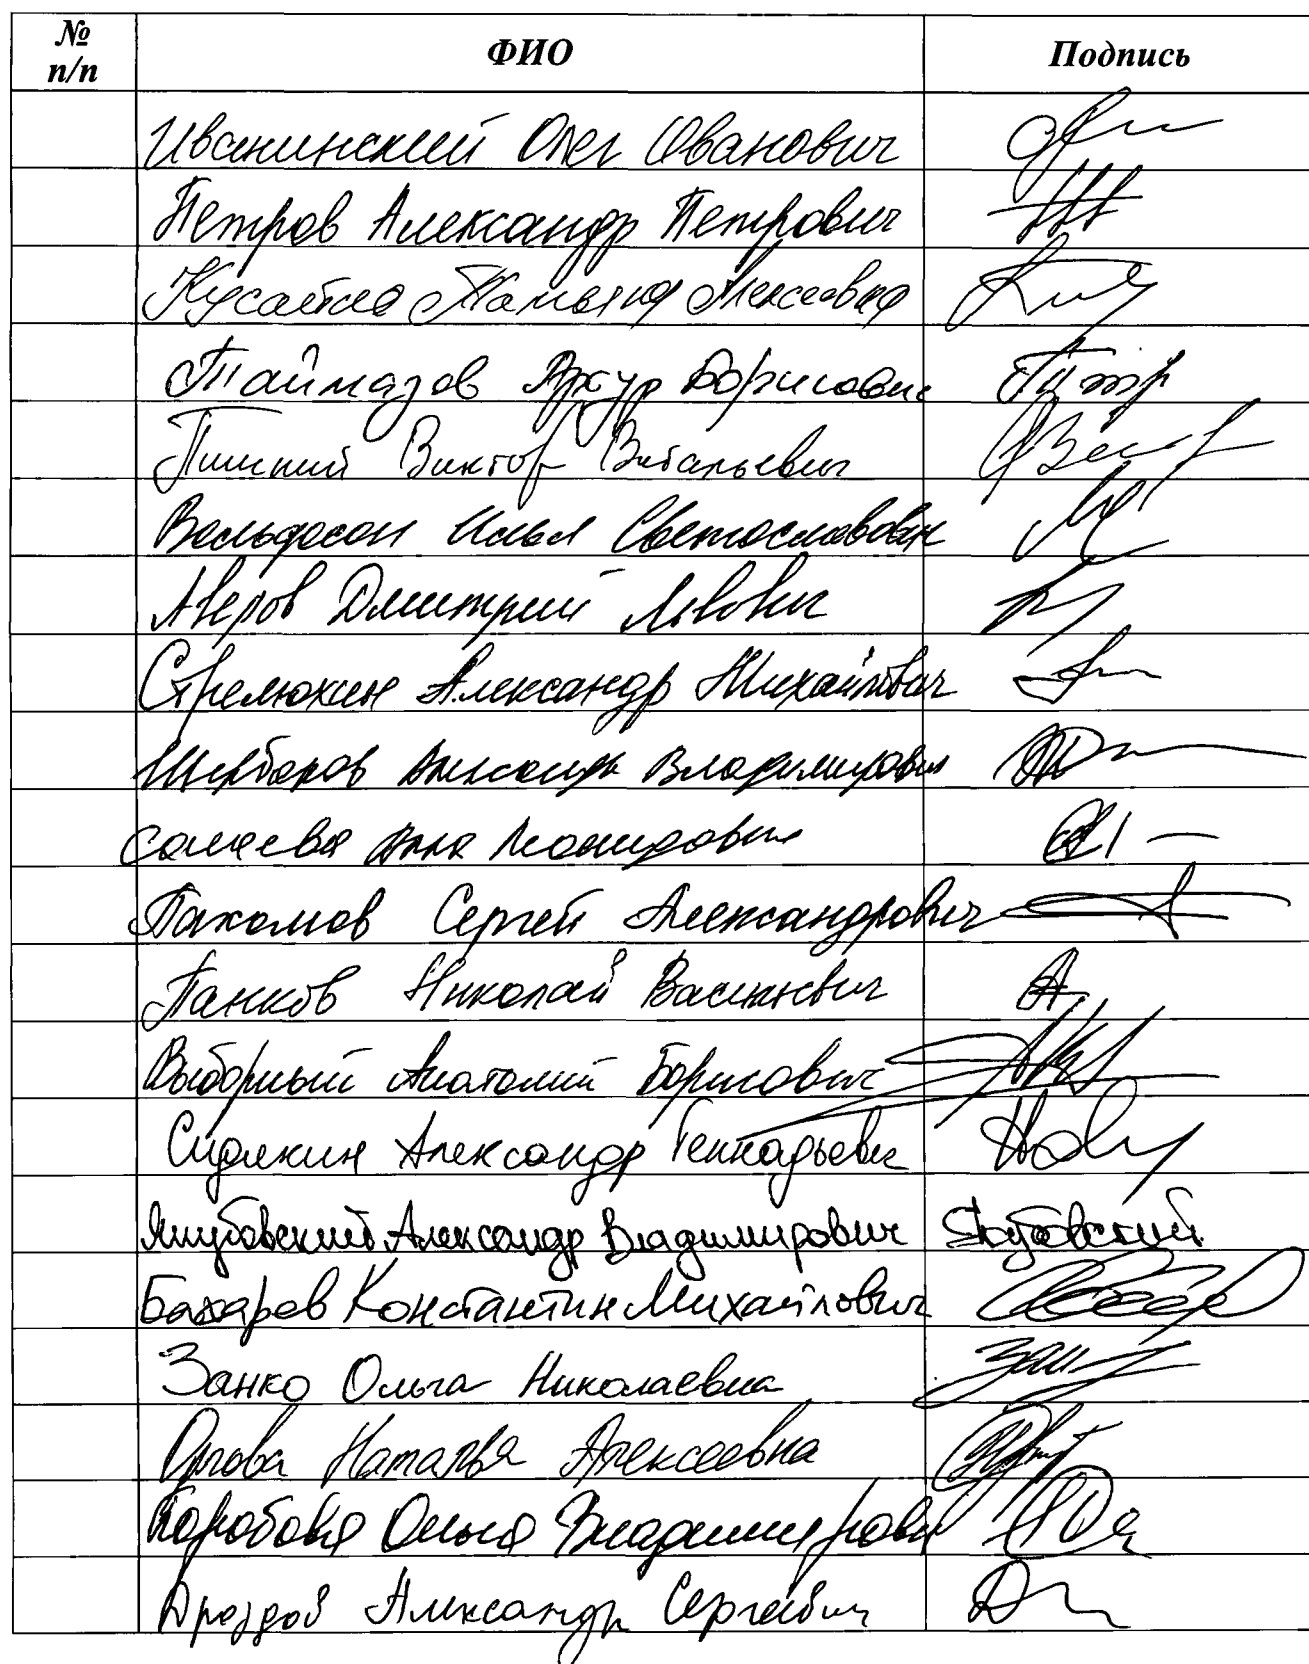 № п/п ФИО Подпись
Иванинский Олег Иванович
Петров Александр Петрович
Кусайко Татьяна Алексеевна
Таймазов Артур Борисович
Пинский Виктор Витальевич
Вольфсон Илья Светославович
Аверов Дмитрий Львович
Стрелюхин Александр Михайлович
Щербаков Александр Владимирович
Анна Леонидовна
Пахомов Сергей Александрович
Панков Николай Васильевич
Выборный Анатолий Борисович
Сидякин Александр Геннадьевич
Якубовский Александр Владимирович Якубовский
Бахарев Константин Михайлович
Занко Ольга Николаевна
Орлова Наталья Алексеевна
Коробова Ольга Владимировна
Дроздов Александр Сергеевич